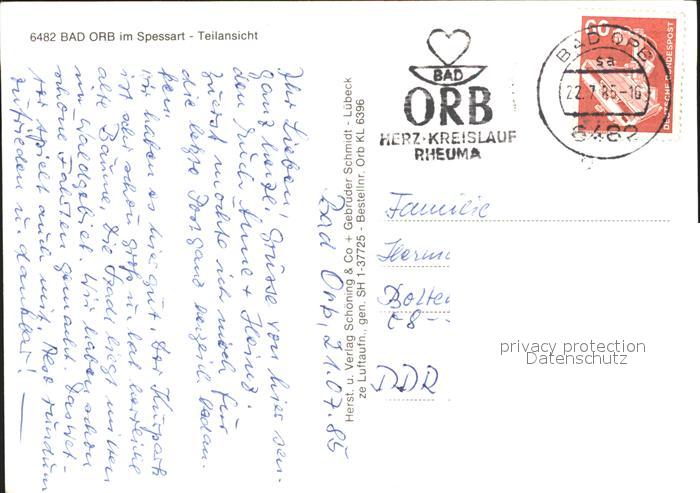 6482 BAD ORB im Spessart - Teilansicht
BAD
ORB
HERZ-KREISLAUF
RHEUMA
BAD ORB
sa
22.7.85-16
6482
60
DEUTSCHE BUNDESPOST
Herst. u. Verlag Schöning & Co + Gebrüder Schmidt - Lübeck
ze Luftaufn., gen. SH 1-37725 - Bestellnr. Orb KL 6396
Bad Orb, 21.07.85
Ihr Lieben!
Ganz herzl. Grüsse von hier sen-
den Euch Anne + Heinz.
Zuerst möchte ich mich für
die letzte Post ganz herzlich bedan-
ken.
Wir haben es hier gut. Der Kurpark
ist sehr schön groß u. hat herrliche
alte Bäume. Die Stadt liegt mitten
im Waldgebiet. Wir haben schon
schöne Fahrten gemacht. Das Wet-
ter spielt auch mit. Also rundum
zufrieden u. dankbar!
Familie
Herm
Bolten
C8--
DDR
privacy protection
Datenschutz